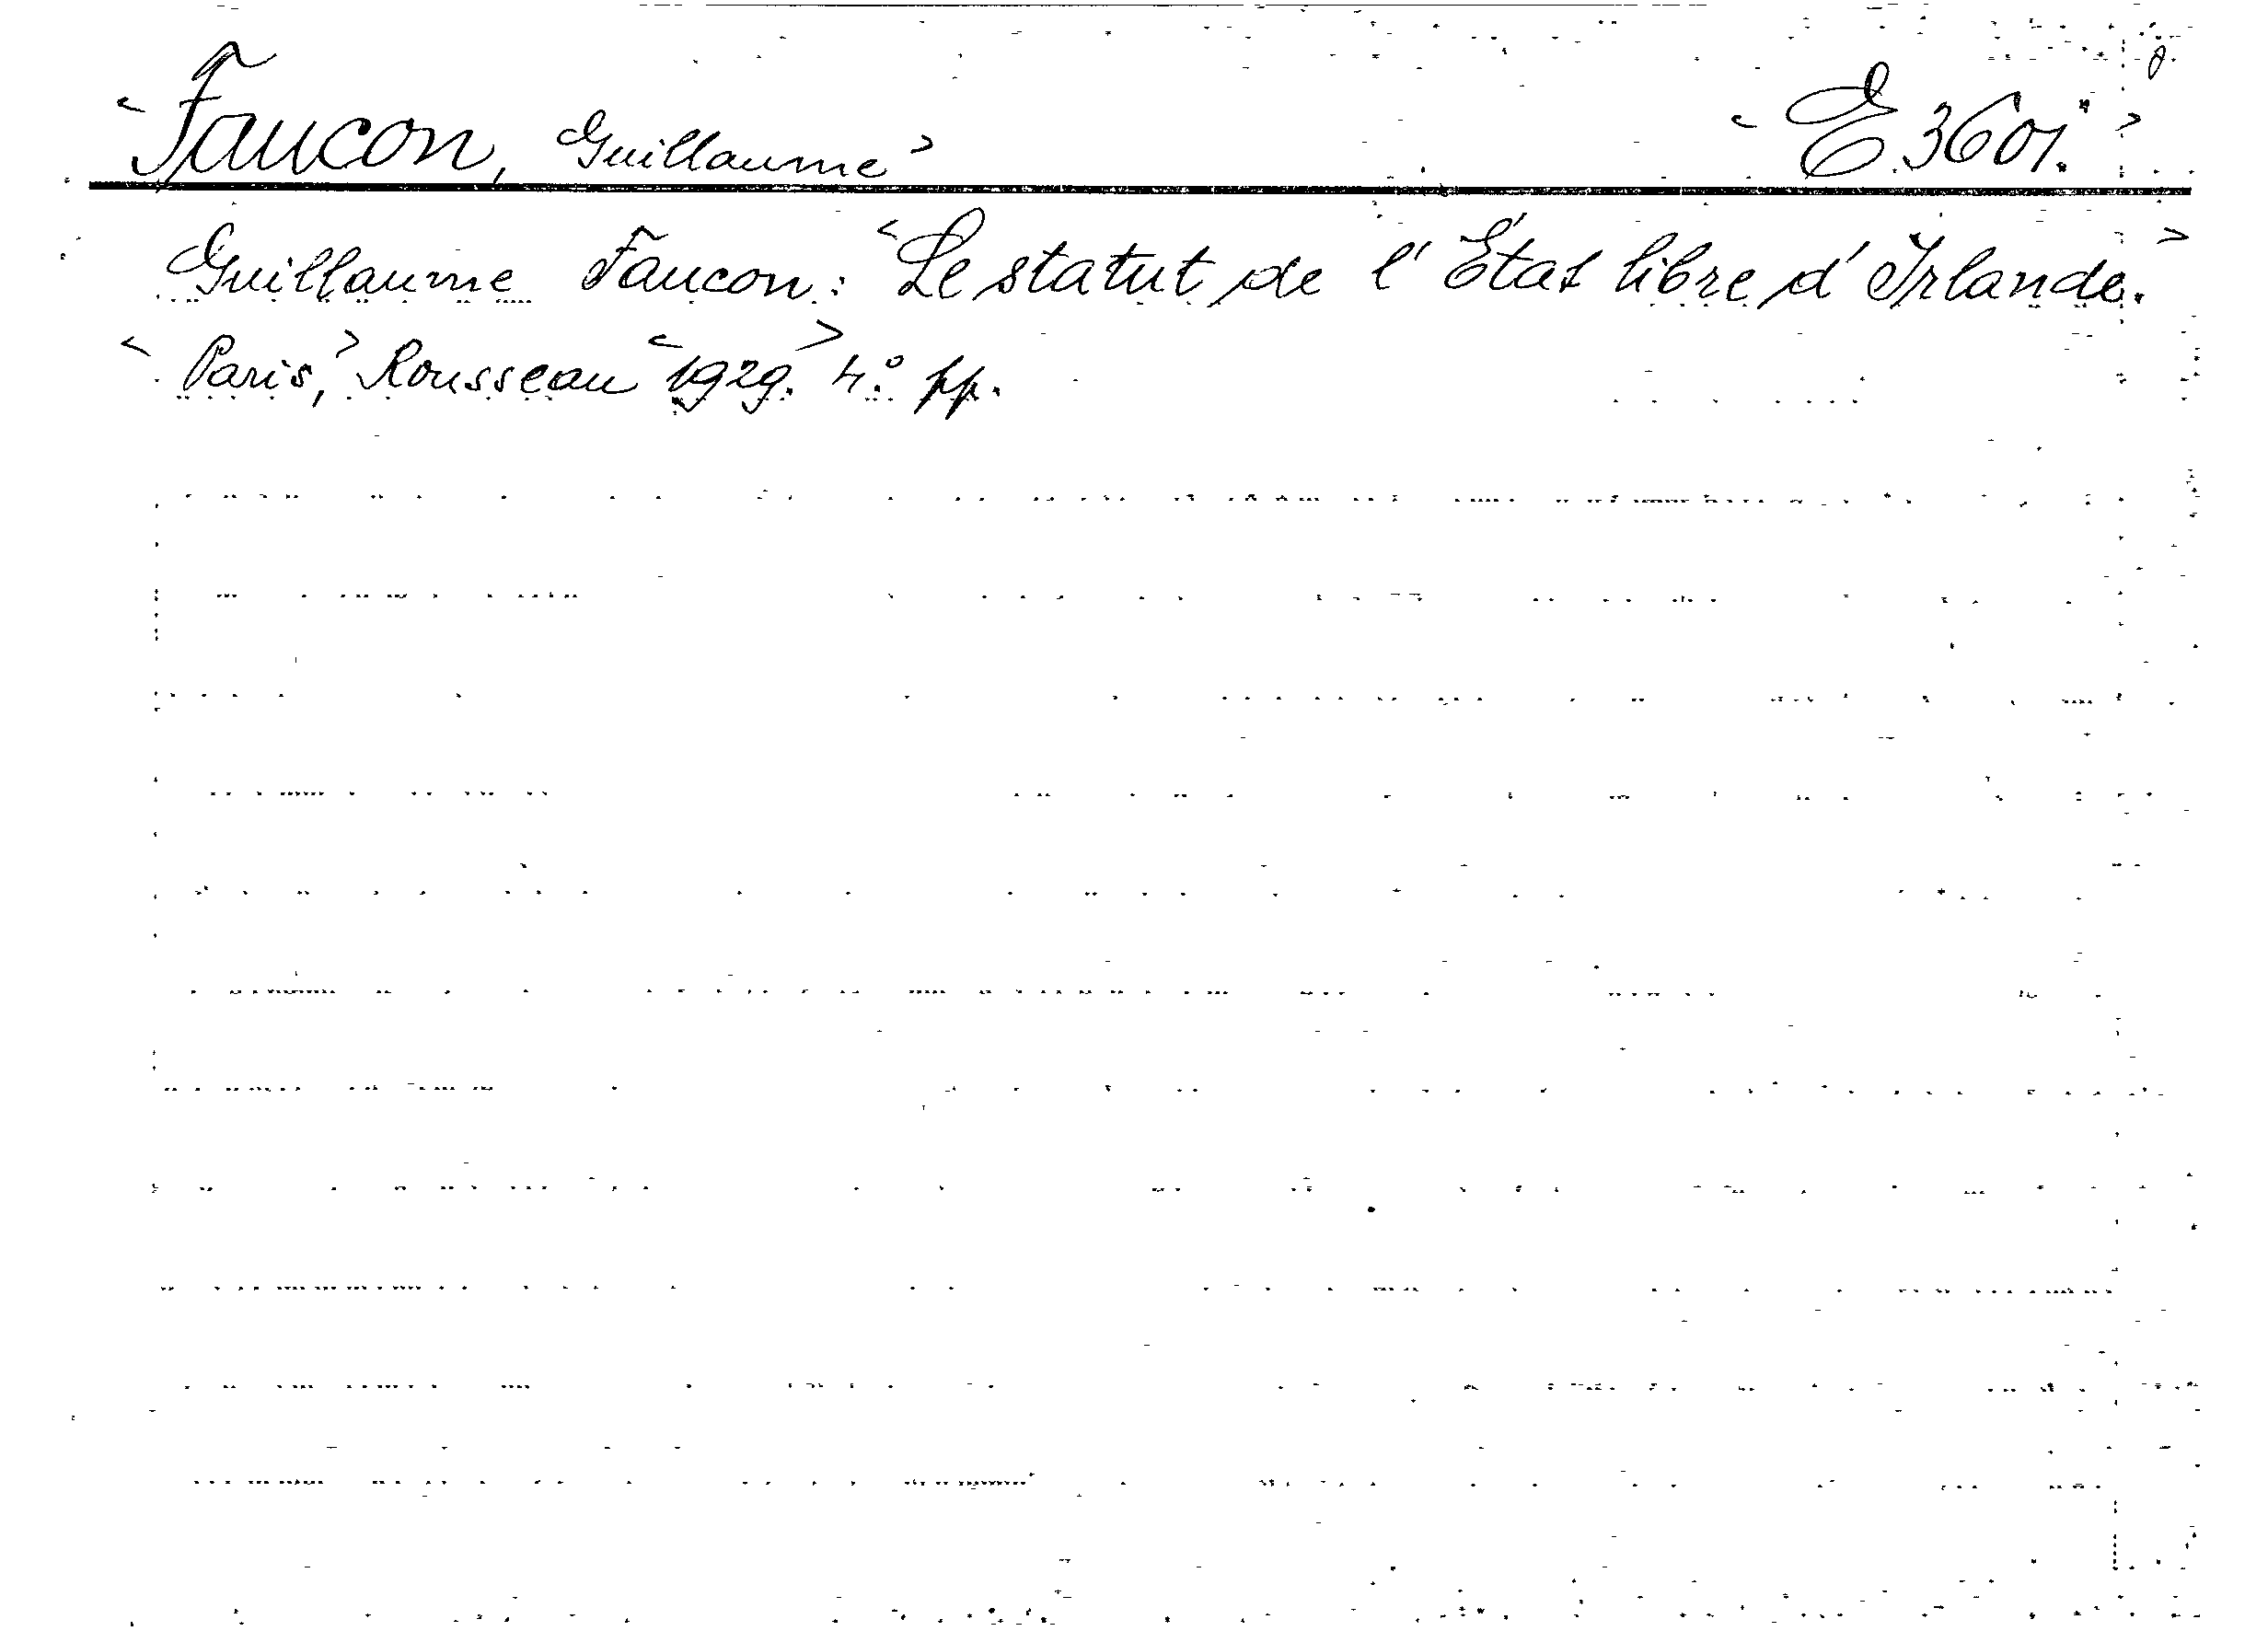 <Faucon, Guillaume> <E.3601.>
Guillaume Faucon: <Le statut de l'État libre d'Irlande.>
<Paris,> Rousseau <1929.> 4.° pp.